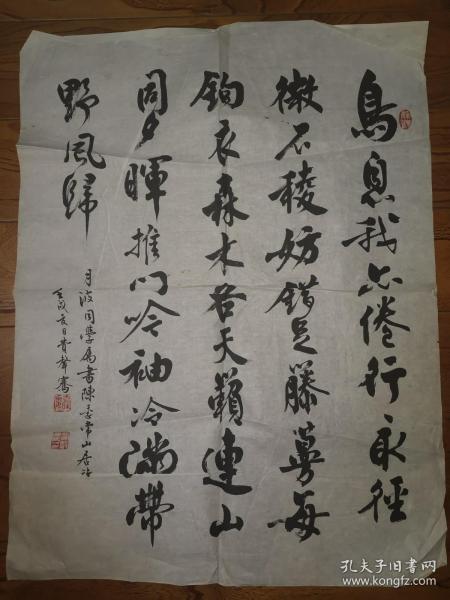 鳥息我亦倦行永徑
微石稜妨錯足籐蔓每
鉤衣森木答天籟連山
同夕暉推門吟袖冷滿帶
野風歸
月波同學属書陳
山居
壬戌
孔夫子旧书网
www.kongfz.com